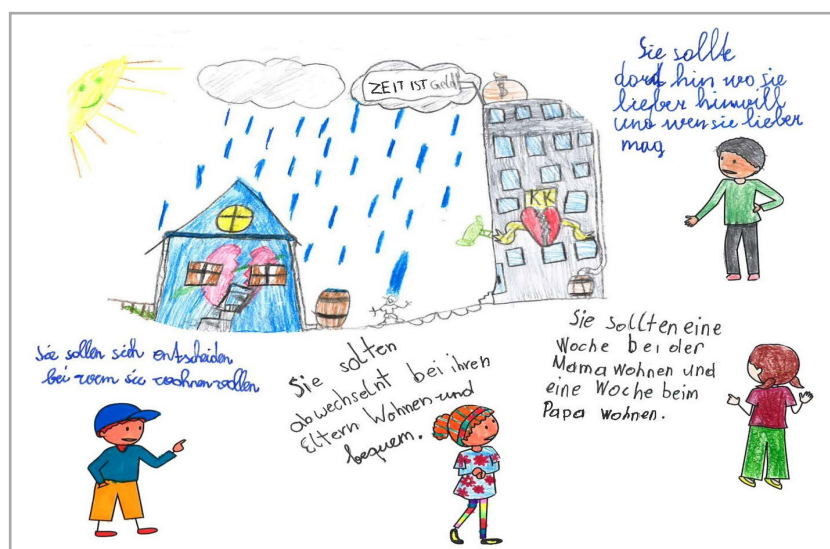 Sie sollte
dord hin wo sie
lieber hinwill
und wen sie lieber
mag
ZEIT IST Geld!
KK
Sie sollen sich entscheiden
bei wem sie wohnen wollen
Sie solten
abwechselnt bei ihren
Eltern Wohnen und
bequem.
Sie sollten eine
Woche bei der
Mama wohnen und
eine Woche beim
Papa wohnen.